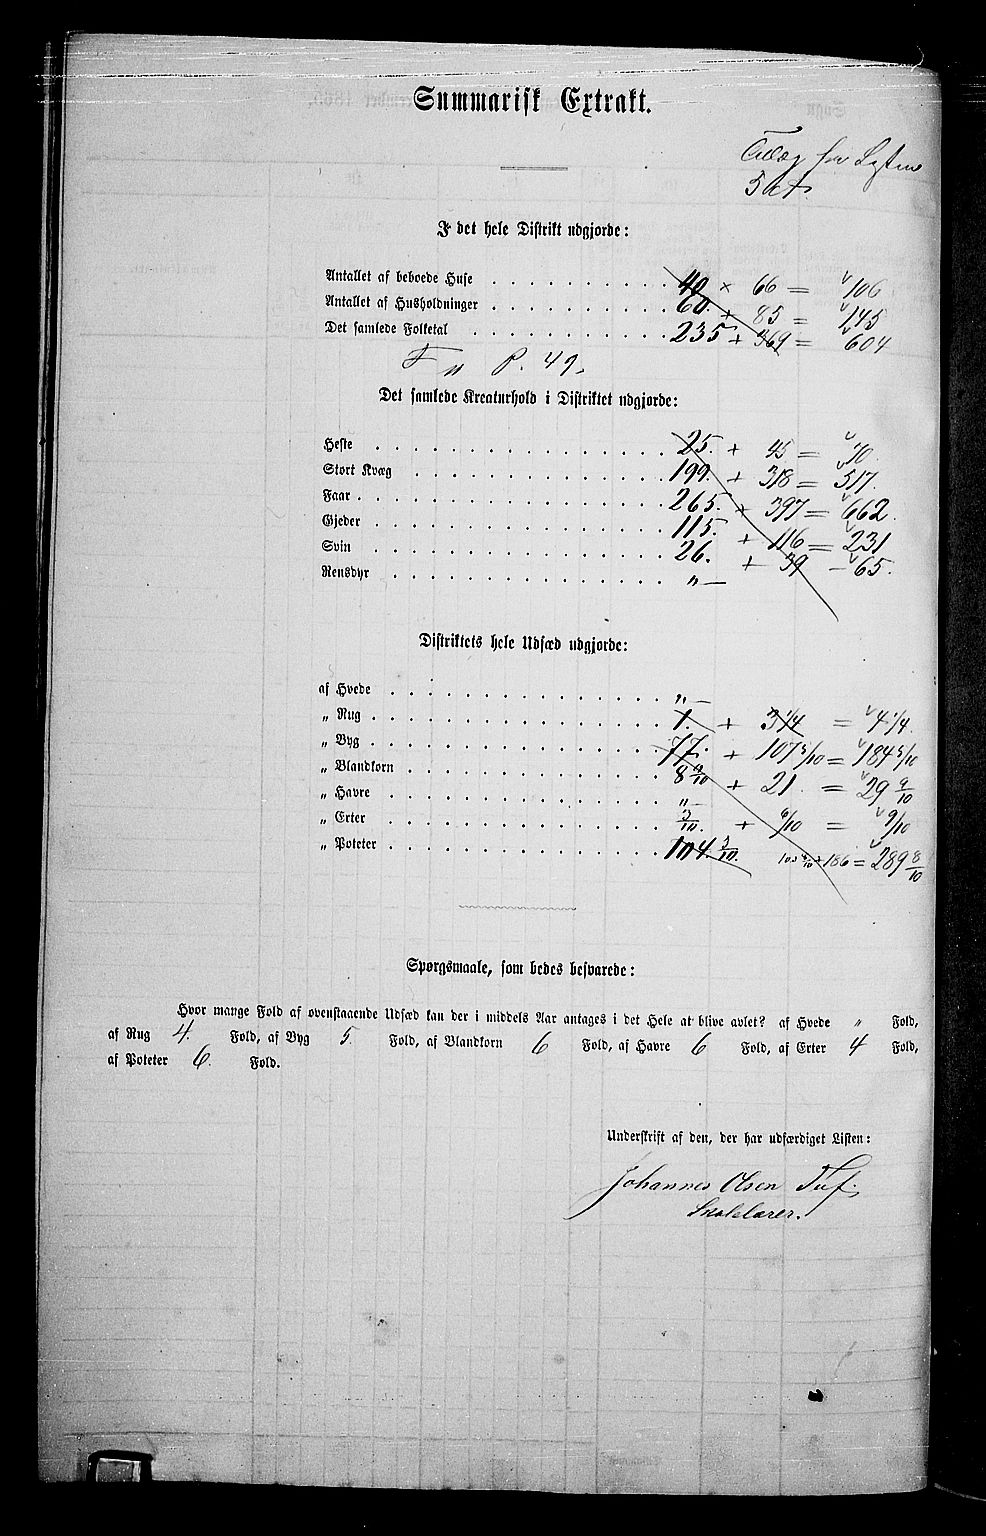 Summarisk Extrakt.
5
I det hele Distrikt udgjorde:
Antallet af beboede Huse 40 × 66 = 106
Antallet af Husholdninger 60. + 85 = 145
Det samlede Folketal 235 + 369 = 604
F „ P. 49.
Det samlede Kreaturhold i Distriktet udgjorde:
Heste 25. + 45 = 70
Stort Kvæg 199. + 318 = 517.
Faar 265. + 397 = 662.
Gjeder 115. + 116 = 231
Svin 26. + 39 – 65.
Rensdyr „ —
Distriktets hele Udsæd udgjorde:
af Hvede „ —
„ Rug 1. + 3 1/4 = 4 1/4.
„ Byg 77. + 107 3/10 = 184 3/10
„ Blandkorn 8 9/10 + 21. = 29 9/10
„ Havre „ —
„ Erter 3/10. + 6/10 = 9/10
„ Poteter 104. 3/10. + 186 = 289 8/10
Spørgsmaale, som bedes besvarede:
Hvor mange Fold af ovenstaaende Udsæd kan der i middels Aar antages i det Hele at blive avlet? af Hvede „ Fold,
af Rug 4. Fold, af Byg 5. Fold, af Blandkorn 6 Fold, af Havre 6 Fold, af Erter 4 Fold,
af Poteter 6. Fold.
Underskrift af den, der har udfærdiget Listen:
Johannes Olsen Tuf.
Skolelærer.